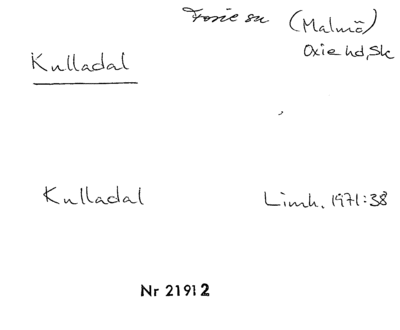 Fosie sn (Malmö)
Oxie hd, Sk
Kulladal
Kulladal Limh. 1971:38
Nr 21912